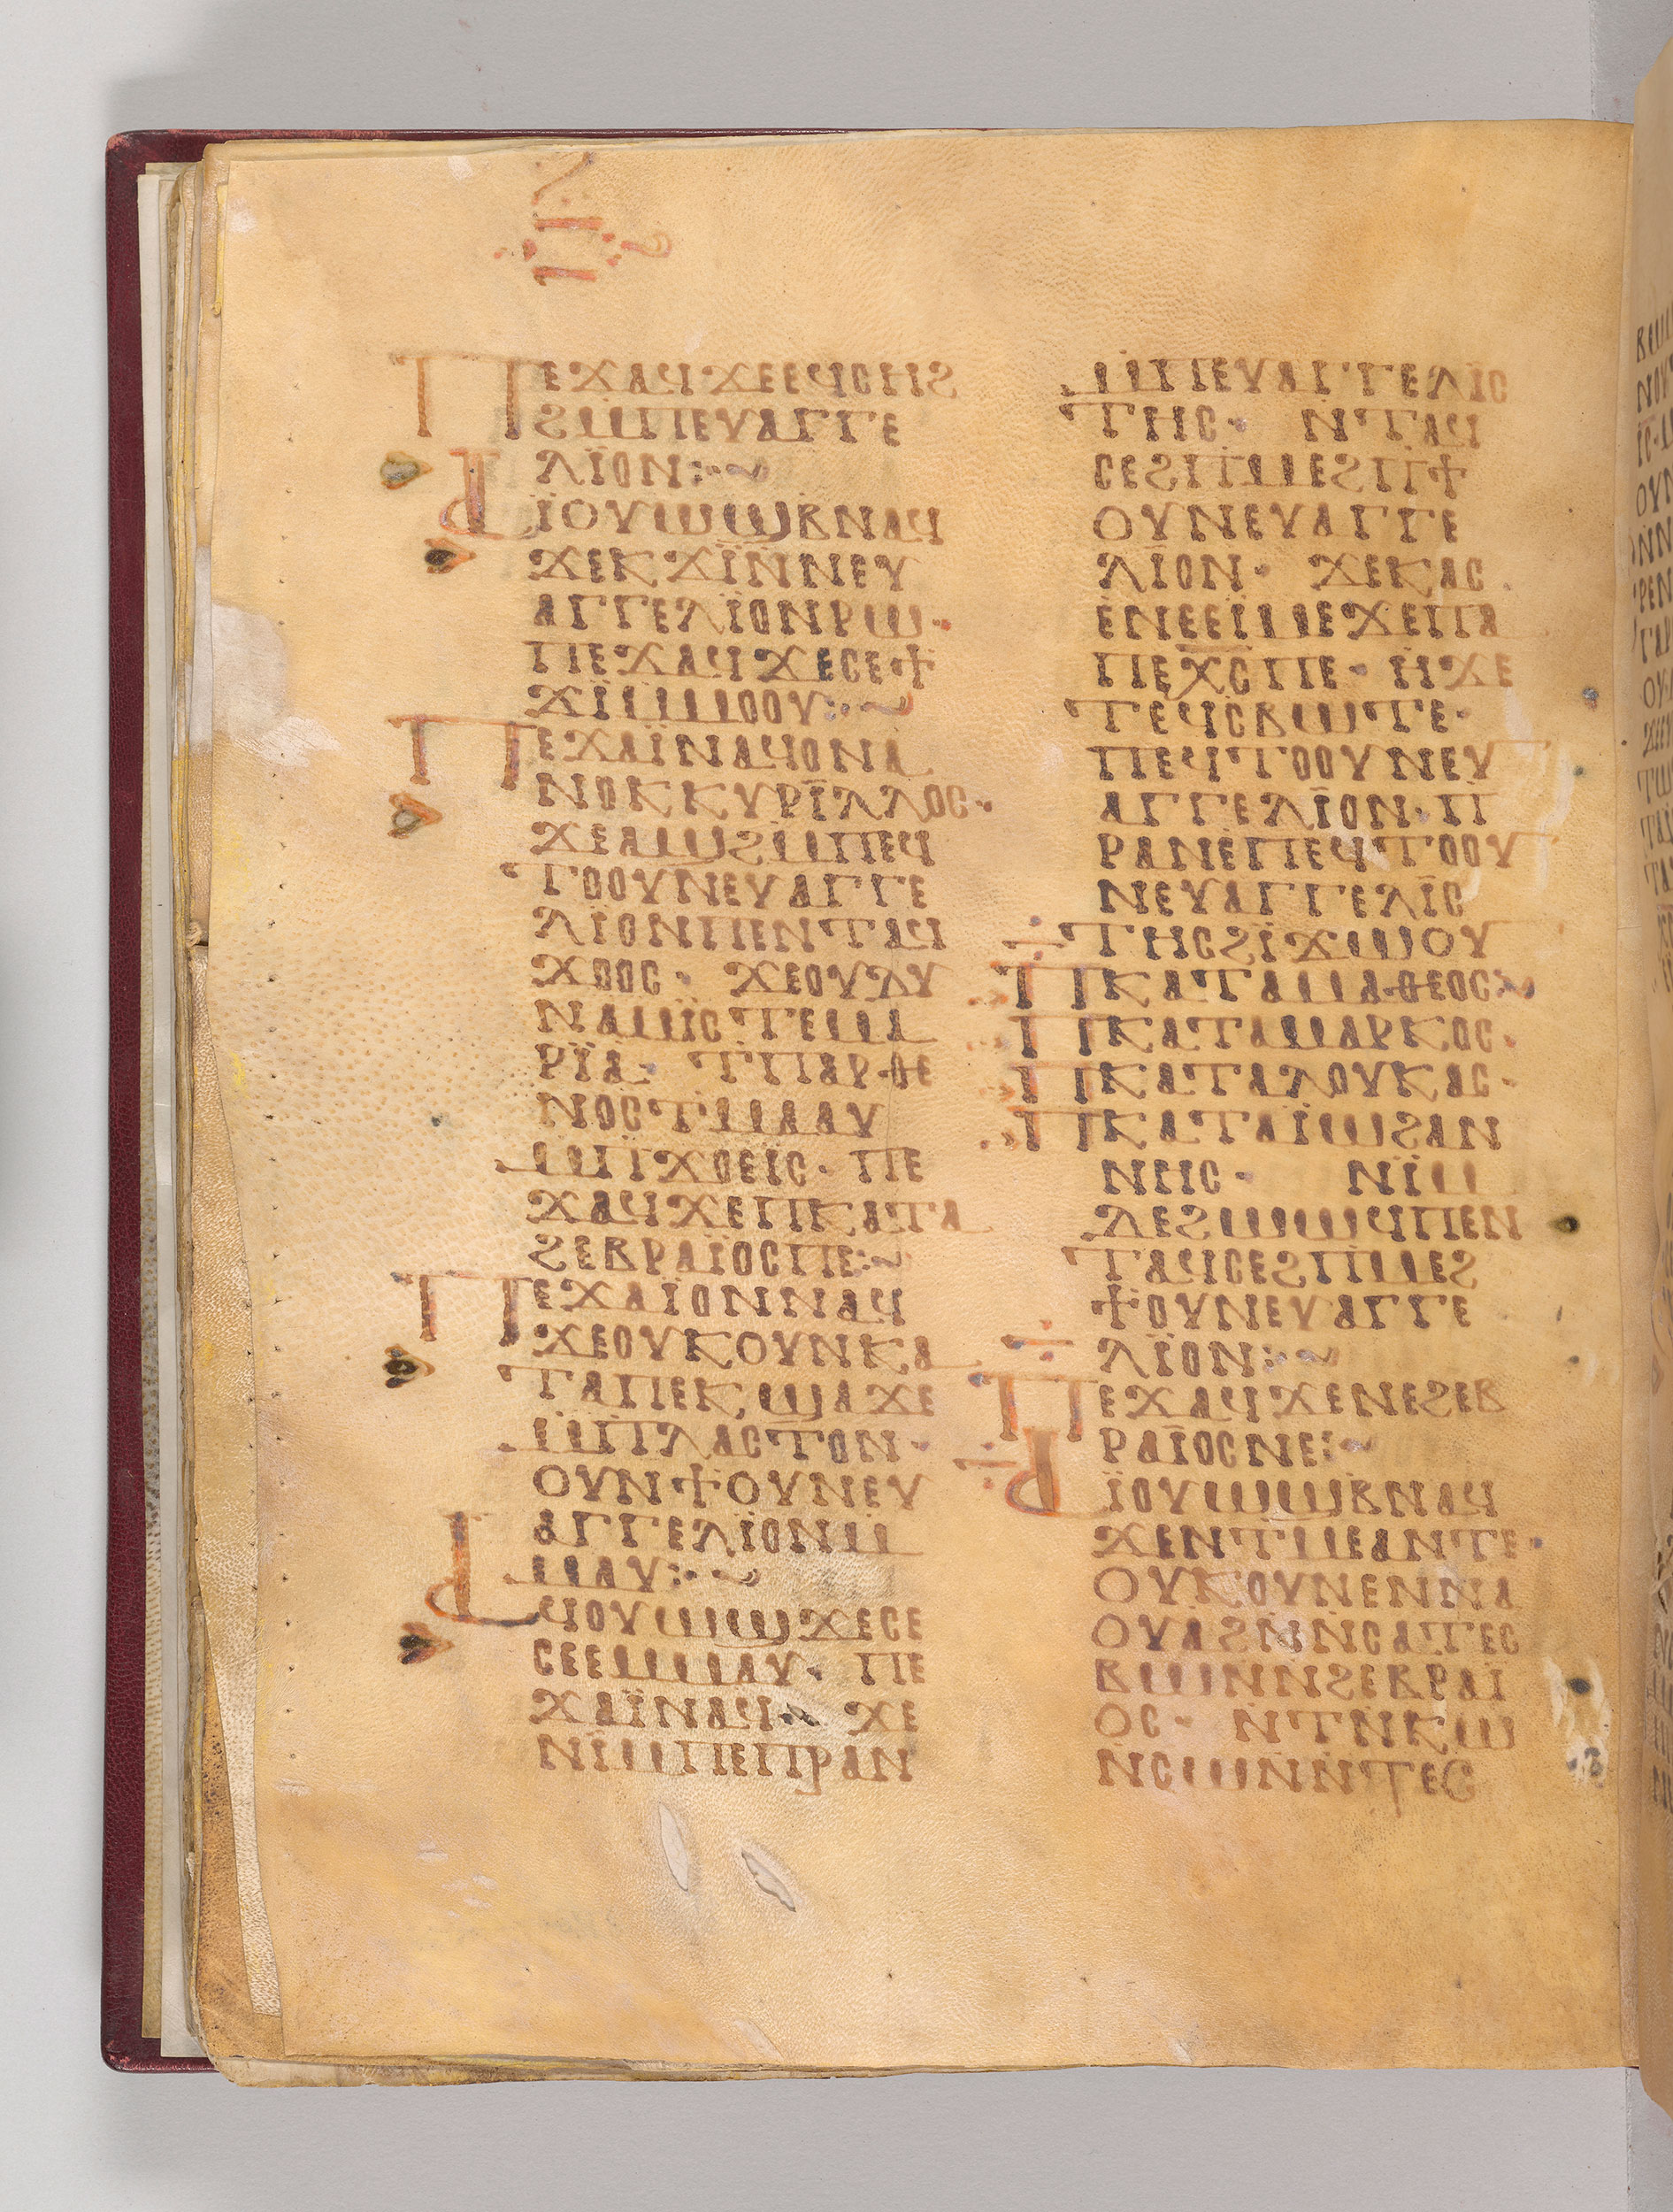 ⲡⲉϫⲁϥϫⲉⲉϥⲥⲏϩ
ϩⲙⲡⲉⲩⲁⲅⲅⲉ
ⲗⲓ̈ⲟⲛ:·~
ⲁⲓ̈ⲟⲩⲱϣⲃⲛⲁϥ
ϫⲉⲕϫⲓ̈ⲛ̇ⲛⲉⲩ
ⲁⲅⲅⲉⲗⲓ̈ⲟⲛⲣⲱ·
ⲡⲉϫⲁϥϫⲉⲥⲉϯ
ϫⲓ̈ⲙ̇ⲙⲟⲟⲩ:·~
ⲡⲉϫⲁⲓ̈ⲛⲁϥⲟⲛⲁ
ⲛⲟⲕⲕⲩⲣⲓ̈ⲗⲗⲟⲥ·
ϫⲉⲁϣϩⲙ̇ⲡⲉϥ
ⲧⲟⲟⲩⲛⲉⲩⲁⲅⲅⲉ
ⲗⲓ̈ⲟⲛⲡⲉⲛⲧⲁϥ
ϫⲟⲟⲥ· ϫⲉⲟⲩⲇⲩ
ⲛⲁⲙⲓ̈ⲥⲧⲉⲙⲁ
ⲣⲓ̈ⲁ· ⲧ̇ⲡⲁⲣⲑⲉ
ⲛⲟⲥⲧ̇ⲙⲁⲁⲩ
ⲙ̇ⲡ̇ϫⲟⲉⲓ̈ⲥ· ⲡⲉ
ϫⲁϥϫⲉⲡⲕⲁⲧⲁ
ϩⲉⲃⲣⲁⲓ̈ⲟⲥⲡⲉ:·~
ⲡⲉϫⲁⲓ̈ⲟⲛⲛⲁϥ
ϫⲉⲟⲩⲕⲟⲩⲛⲕⲁ
ⲧⲁⲡⲉⲕϣⲁϫⲉ
ⲙ̇ⲡ̇ⲗⲁⲥⲧⲟⲛ·
ⲟⲩⲛϯⲟⲩⲛⲉⲩ
ⲁⲅⲅⲉⲗⲓ̈ⲟⲛⲙ̇
ⲙⲁⲩ:·~
ⲁϥⲟⲩⲱϣϫⲉⲥⲉ
ⲥⲉⲉⲙⲙⲁⲩ· ⲡⲉ
ϫⲁⲓ̈ⲛⲁϥ·~ ϫⲉ
ⲛⲓ̈ⲙⲡⲉⲡⲣⲁⲛ
ⲙ̇ⲡⲉⲩⲁⲅⲅⲉⲗⲓ̈ⲥ
ⲧⲏⲥ· ⲛ̇ⲧⲁϥ
ⲥⲉϩⲡ̇ⲙⲉϩⲡ̇ϯ
ⲟⲩⲛⲉⲩⲁⲅⲅⲉ
ⲗⲓ̈ⲟⲛ· ϫⲉⲕⲁⲥ
ⲉ̇ⲛⲉⲉⲓ̈ⲙⲉϫⲉⲡⲁ
ⲡⲉⲭ̅ⲥ̅ⲡⲉ· ⲏ̇ϫⲉ
ⲧⲉϥⲥⲃⲱⲧⲉ·
ⲡⲉϥⲧⲟⲟⲩⲛⲉⲩ
ⲁⲅⲅⲉⲗⲓ̈ⲟⲛ·ⲡ̇
ⲣⲁⲛⲉ̇ⲡⲉϥⲧⲟⲟⲩ
ⲛⲉⲩⲁⲅⲅⲉⲗⲓ̈ⲥ
ⲧⲏⲥϩⲓ̈ϫⲱⲟⲩ
ⲡⲕⲁⲧⲁⲙⲁⲑⲉⲟⲥ~
ⲡⲕⲁⲧⲁⲙⲁⲣⲕⲟⲥ·
ⲡⲕⲁⲧⲁⲗⲟⲩⲕⲁⲥ·
ⲡⲕⲁⲧⲁⲓ̈ⲱϩⲁⲛ
ⲛⲏⲥ· ⲛⲓ̈ⲙ
ⲇⲉϩⲱⲱϥⲡⲉⲛ
ⲧⲁϥⲥⲉϩⲡ̇ⲙⲉϩ
ϯⲟⲩⲛⲉⲩⲁⲅⲅⲉ
ⲗⲓ̈ⲟⲛ:·~
ⲡⲉϫⲁϥϫⲉⲛⲉϩⲉⲃ
ⲣⲁⲓ̈ⲟⲥⲛⲉ:·~
ⲁⲓ̈ⲟⲩⲱϣⲃⲛⲁϥ
ϫⲉⲛ̇ⲧ̇ⲙⲉⲁⲛⲧⲉ·
ⲟⲩⲕⲟⲩⲛⲉⲛⲛⲁ
ⲟⲩⲁϩⲛ̇ⲛ̇ⲥⲁⲧⲉⲥ
ⲃⲱⲛ̇ⲛϩⲉⲃⲣⲁⲓ̈
ⲟⲥ· ⲛ̇ⲧⲛ̇ⲕⲱ
ⲛ̇ⲥⲱⲛⲛ̇ⲧⲉⲥ